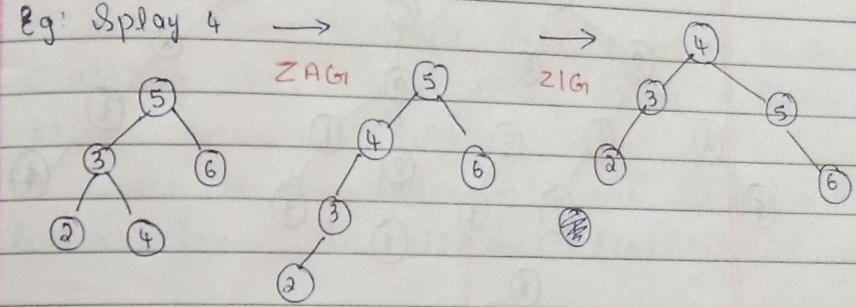 Eg: Splay 4
ZAG
ZIG
5
3
6
2
4
5
4
6
3
2
4
3
5
2
6